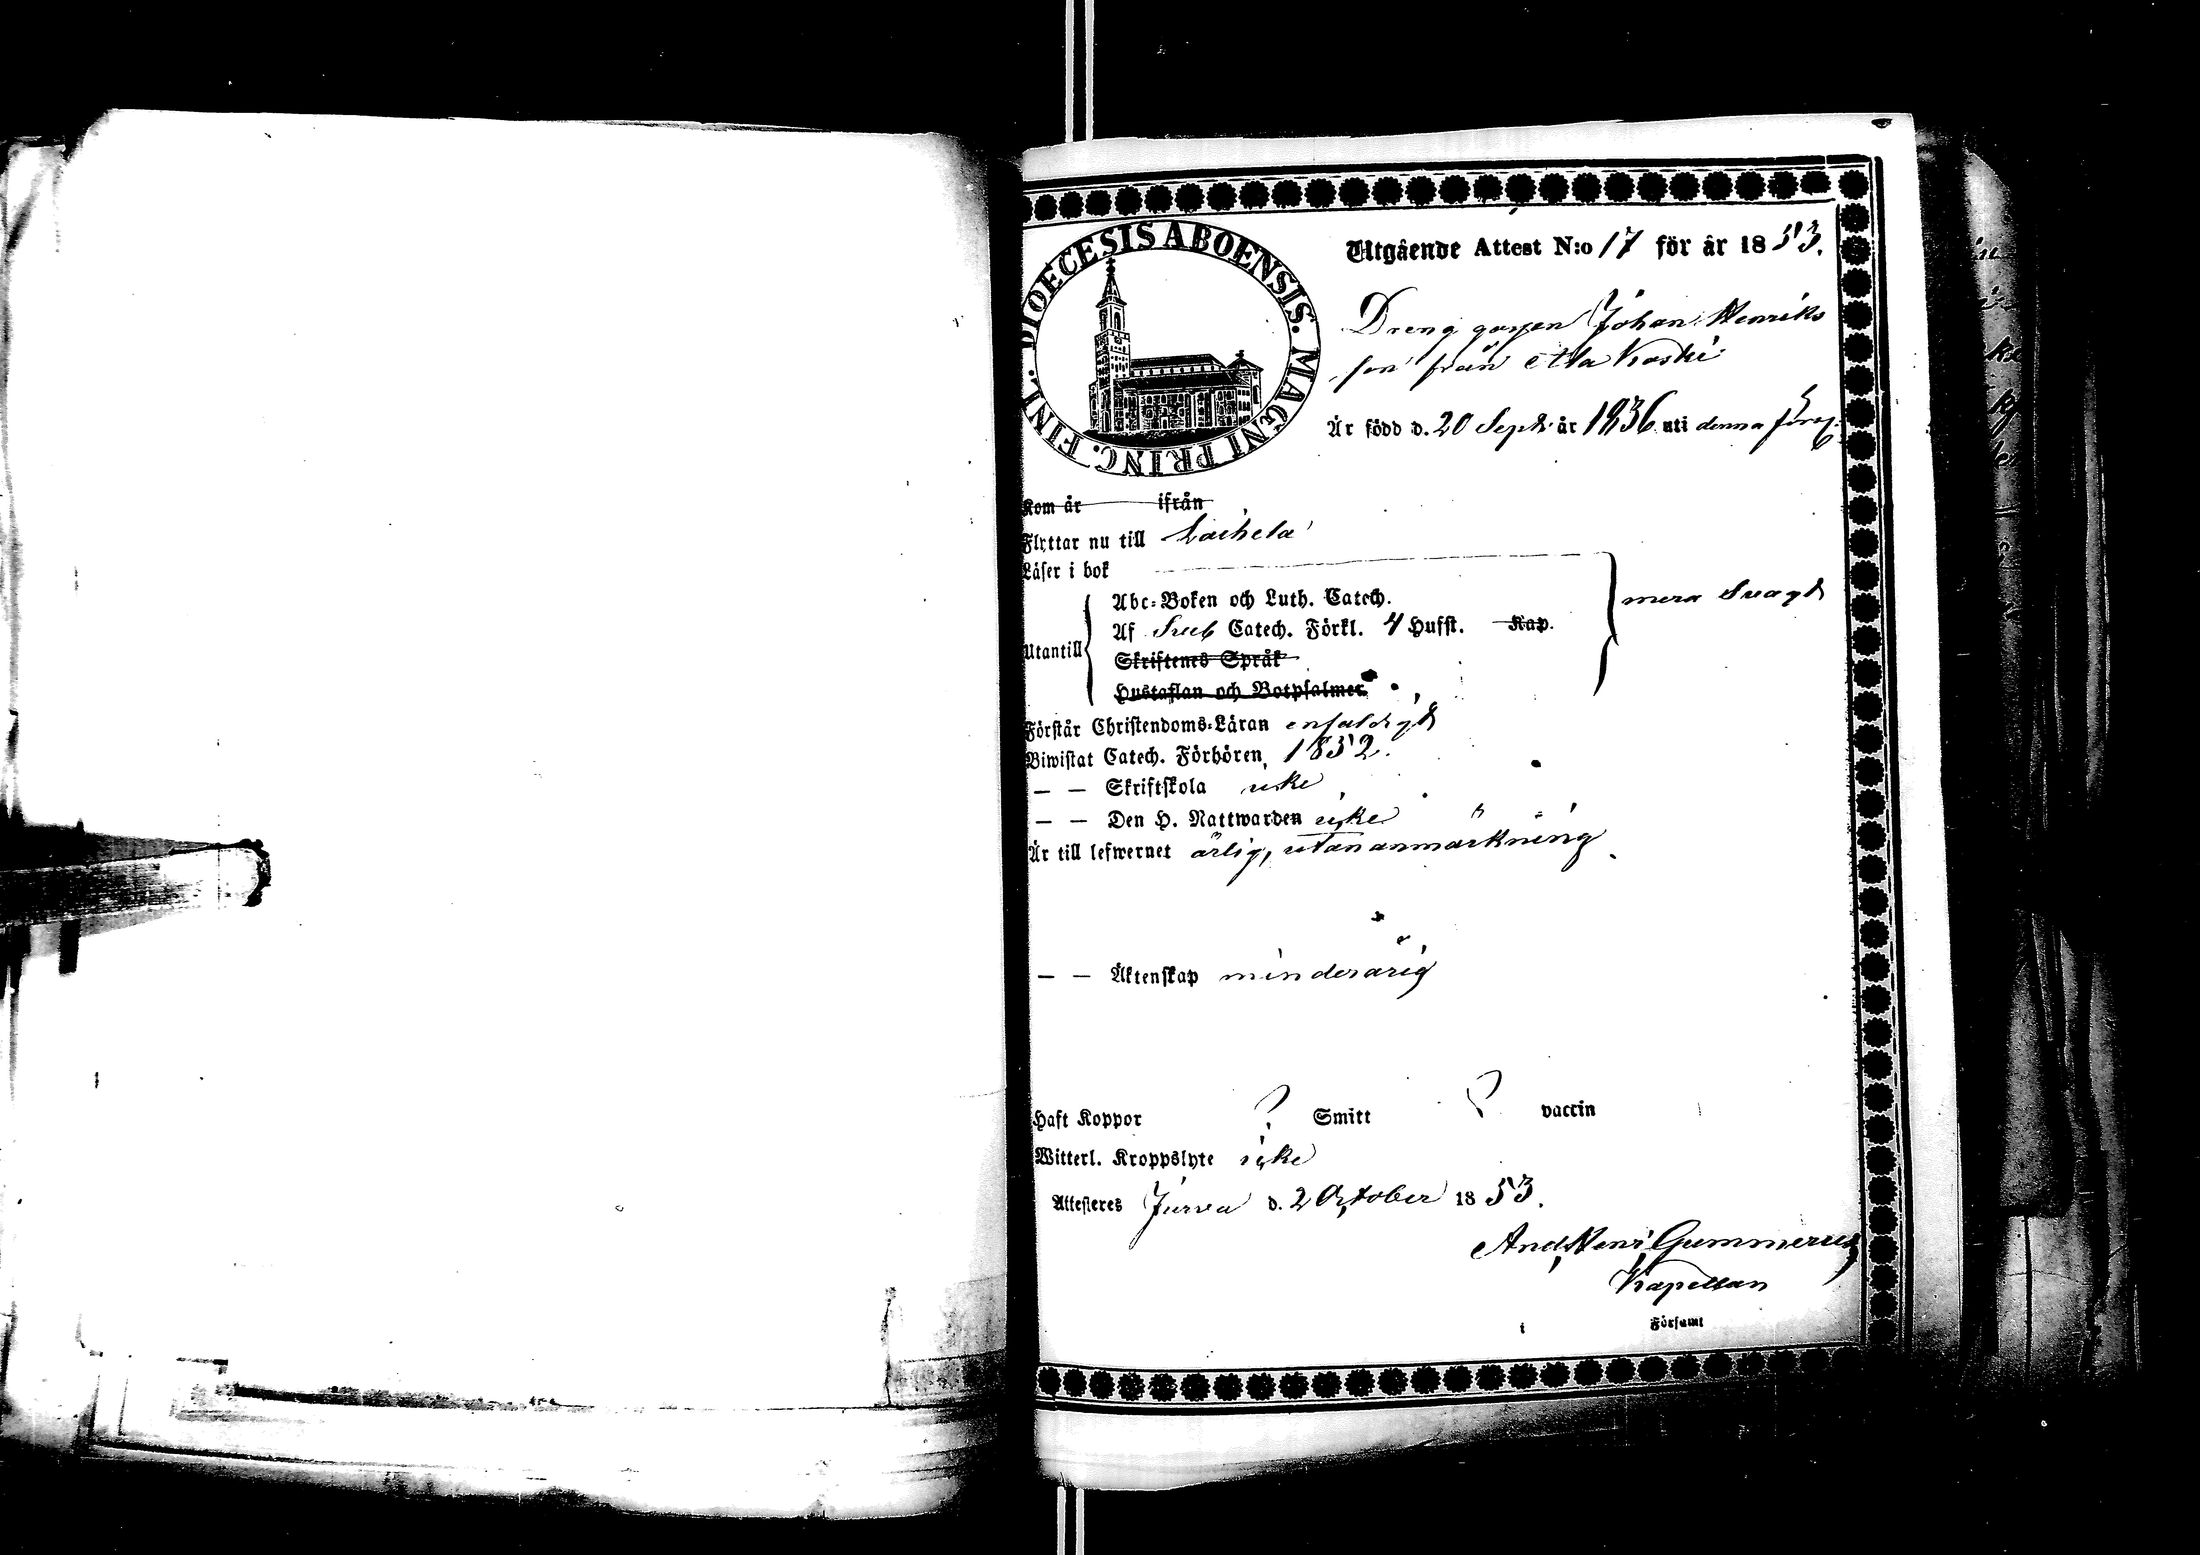 DIOECESIS ABOENSIS. MAGNI PRINC. FINL.
Utgående Attest N:o 17 för år 1853.
Dreng gossen Johan Henriks
son från Ala Koski
Är född d. 20 Sept. år 1836 uti denna förs.
Kom år ifrån
Flyttar nu till Laihela
Läser i bok
Utantill
Abc-Boken och Luth. Catech.
Af Sveb Catech. Förkl. 4 Hufst. Kap.
Skriftenes Språk
Hustaflan och Botpsalmer
mera Svagt
Förstår Christendoms-Läran enfaldigt
Biwistat Catech. Förhören, 1852.
— — Skriftskola icke
— — Den H. Nattwarden icke
Är till lefwernet ärlig, utan anmärkning
— — Äktenskap minderårig
Haft Koppor ? Smitt ? vaccin
Witterl. Kroppslyte icke
Attesteras Jurva d. 2 October 1853.
And, Henr, Gummerus
Kapellan
i Församl